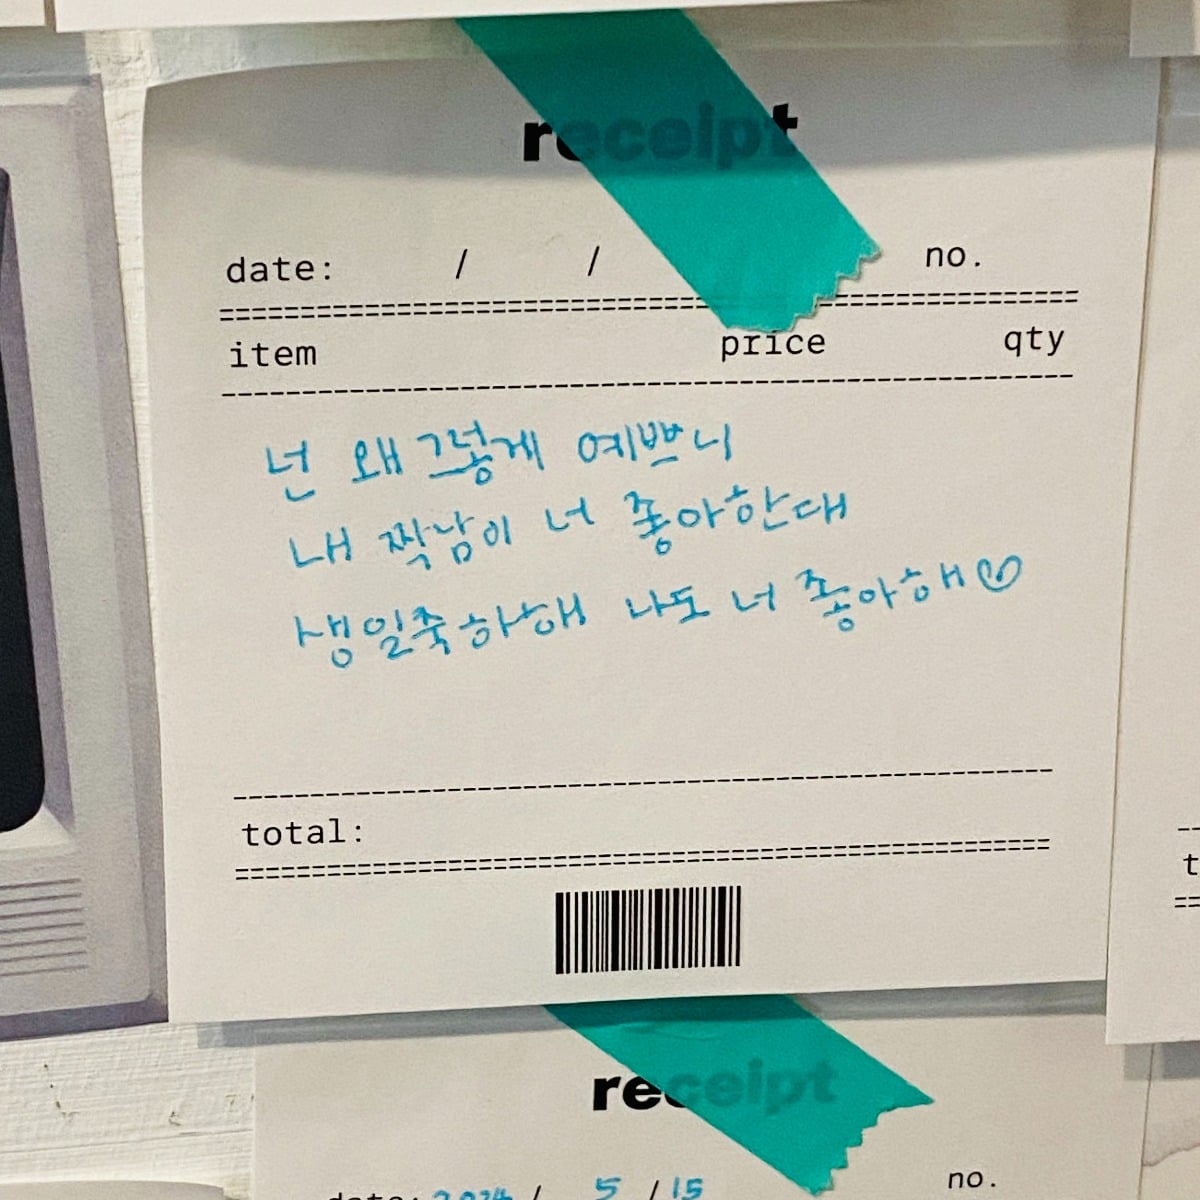 receipt
date: / / no.
==================================================
item price qty
--------------------------------------------------
넌 왜 그렇게 예쁘니
내 짝남이 너 좋아한대
생일축하해 나도 너 좋아해♡
--------------------------------------------------
total:
==================================================
receipt
date: 2024 / 5 / 15 no.
t